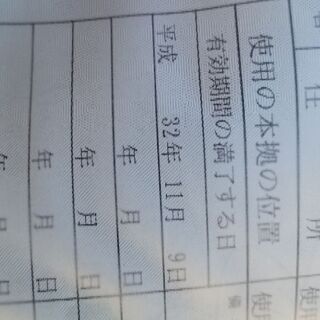 住 所
使用の本拠の位置 使用
有効期間の満了する日
平成 32年 11月 9日
年 月 日
年 月 日
年 月 日
年 月 日